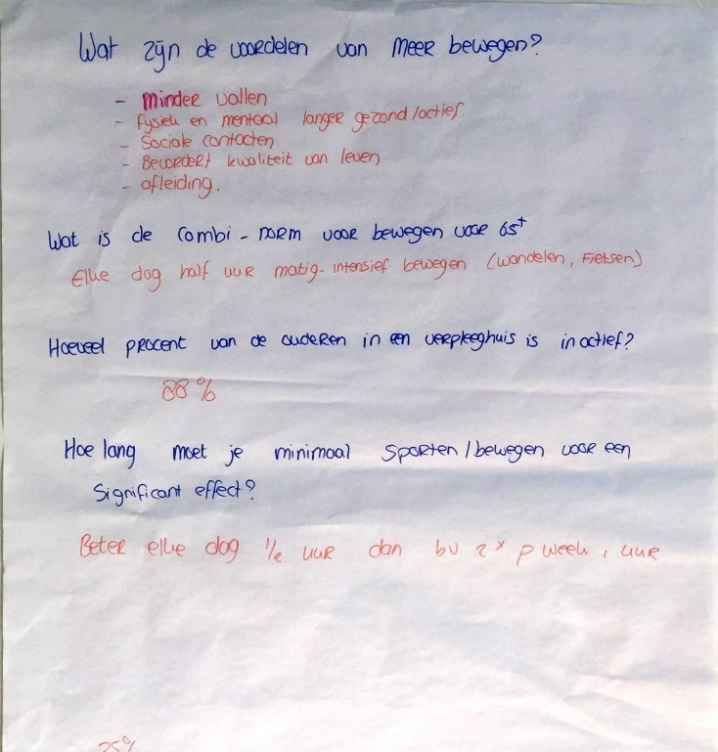 Wat zijn de voordelen van meer bewegen?
- minder vallen
- fysiek en mentaal langer gezond/actief
- Sociale contacten
- Bevordert kwaliteit van leven
- afleiding.
Wat is de Combi-norm voor bewegen voor 65+
Elke dag half uur matig-intensief bewegen (wandelen, Fietsen)
Hoeveel procent van de ouderen in een verpleeghuis is inactief?
88%
Hoe lang moet je minimaal sporten/bewegen voor een
Significant effect?
Beter elke dag 1/2 uur dan bv 2x p week 1 uur